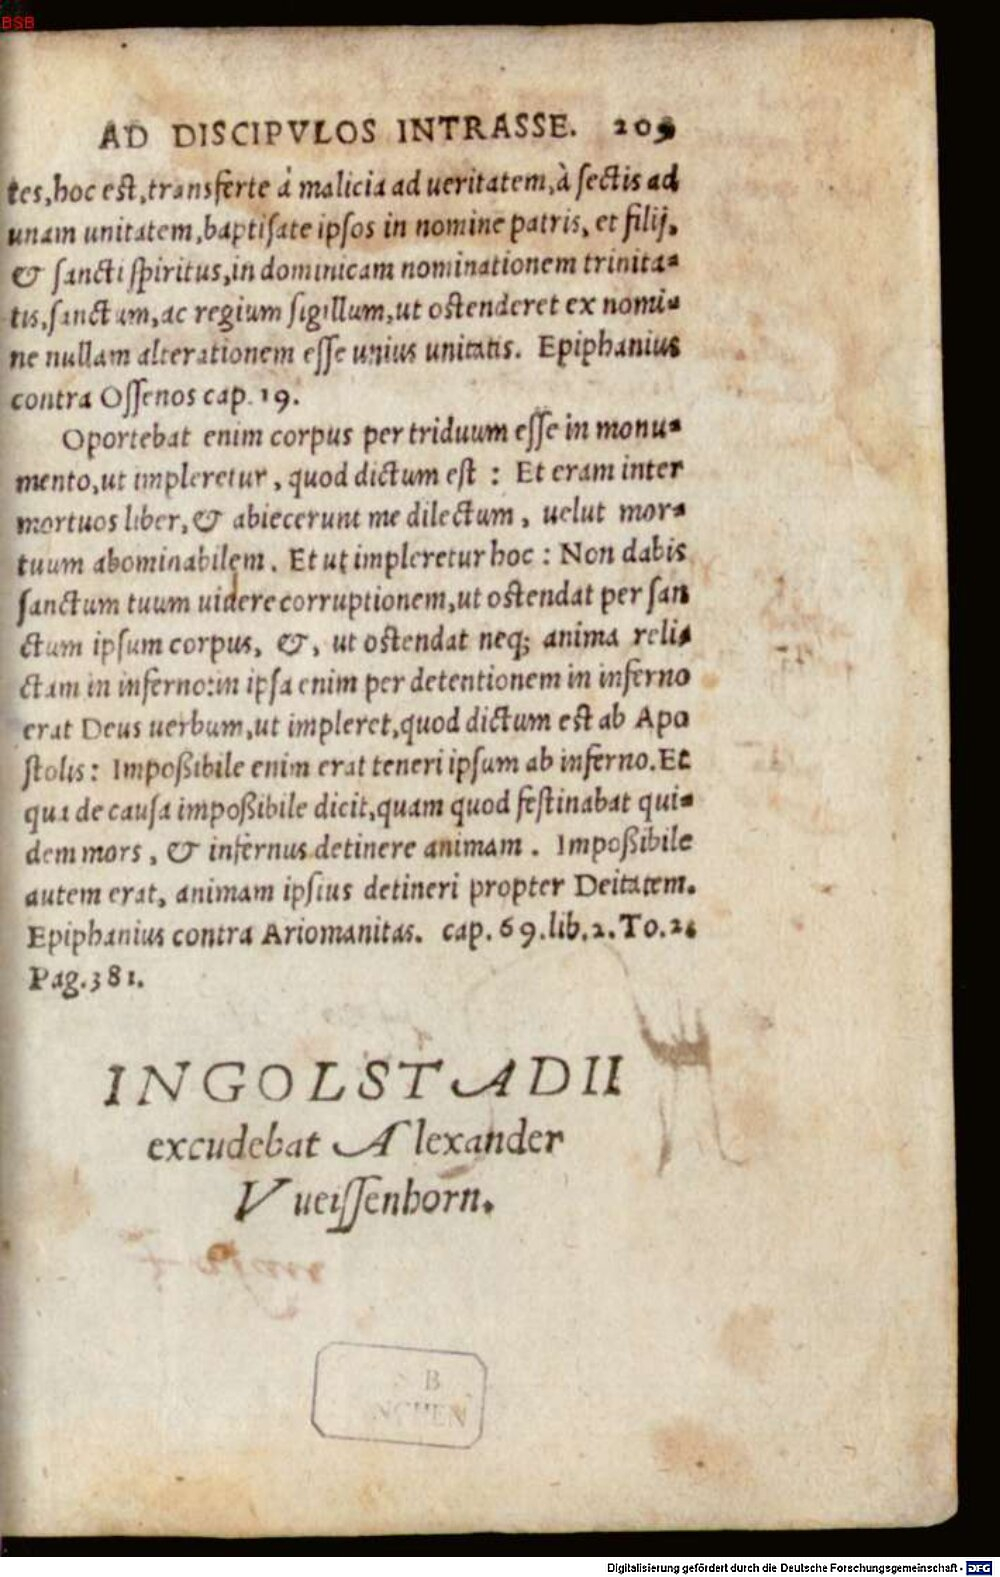 BSB
AD DISCIPVLOS INTRASSE. 209
tes, hoc est, transferte à malicia ad ueritatem, à sectis ad
unam unitatem, baptisate ipsos in nomine patris, et filij,
& sancti spiritus, in dominicam nominationem trinita=
tis, sanctum, ac regium sigillum, ut ostenderet ex nomi=
ne nullam alterationem esse unius unitatis. Epiphanius
contra Ossenos cap. 19.
Oportebat enim corpus per triduum esse in monu=
mento, ut impleretur, quod dictum est : Et eram inter
mortuos liber, & abiecerunt me dilectum, uelut mor=
tuum abominabilem. Et ut impleretur hoc : Non dabis
sanctum tuum uidere corruptionem, ut ostendat per san
ctum ipsum corpus, &, ut ostendat neq; anima reli=
ctam in inferno: in ipsa enim per detentionem in inferno
erat Deus uerbum, ut impleret, quod dictum est ab Apo
stolis : Impoßibile enim erat teneri ipsum ab inferno. Et
qua de causa impoßibile dicit, quam quod festinabat qui=
dem mors, & infernus detinere animam. Impoßibile
autem erat, animam ipsius detineri propter Deitatem.
Epiphanius contra Ariomanitas. cap. 69. lib. 2. To. 2.
Pag. 381.
INGOLSTADII
excudebat Alexander
Vueissenhorn.
B
NCHEN
Digitalisierung gefördert durch die Deutsche Forschungsgemeinschaft - DFG